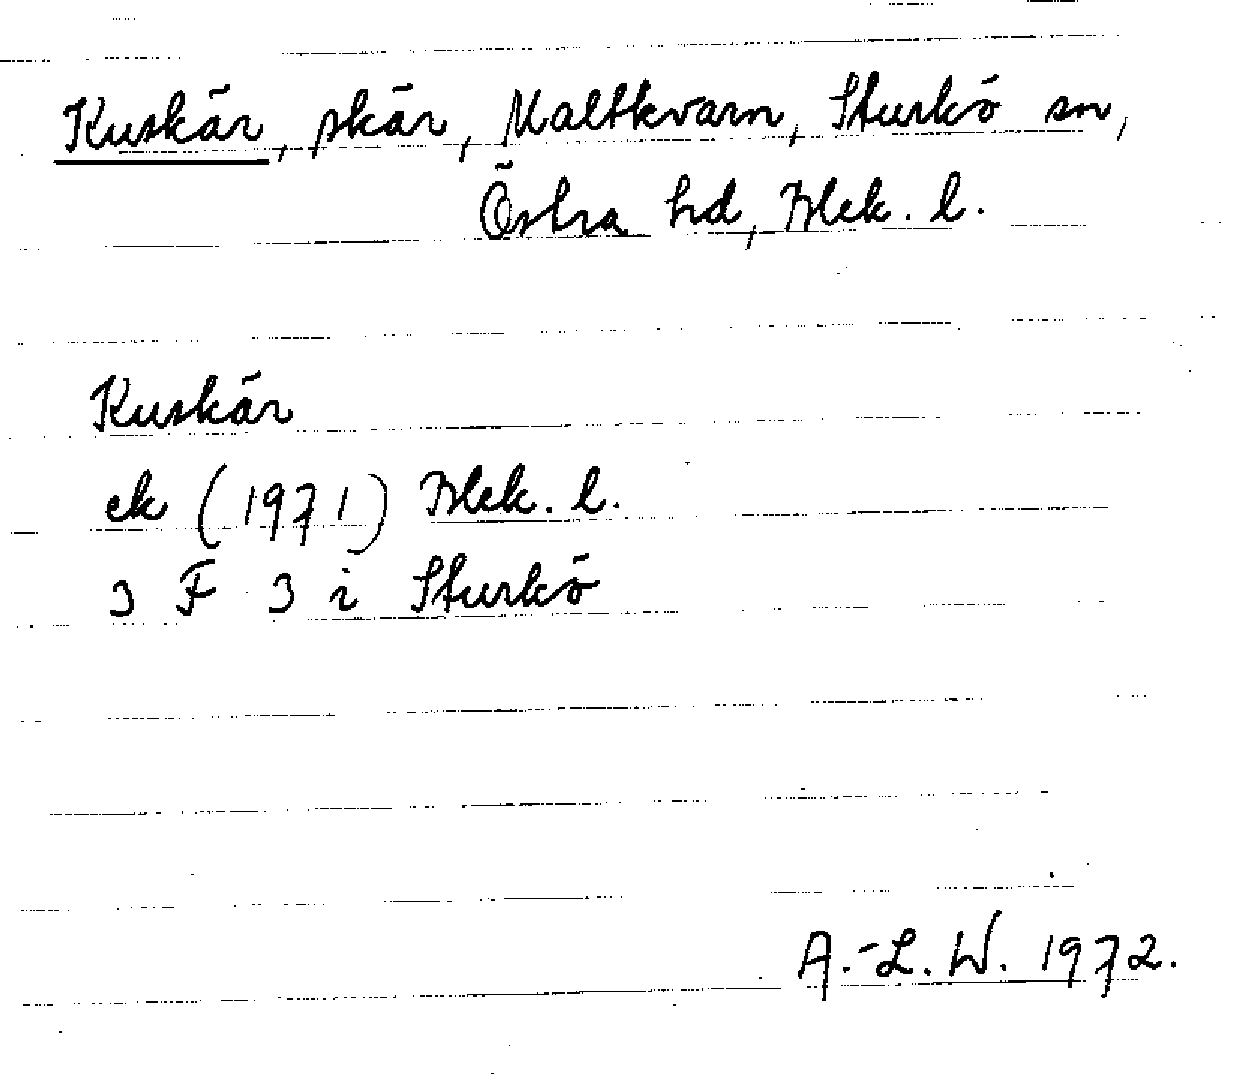 Kuskär, skär, Maltkvarn, Sturkö sn,
Östra hd, Blek. l.
Kuskär
ek (1971) Blek. l.
3 F 3 i Sturkö
A.-L. W. 1972.